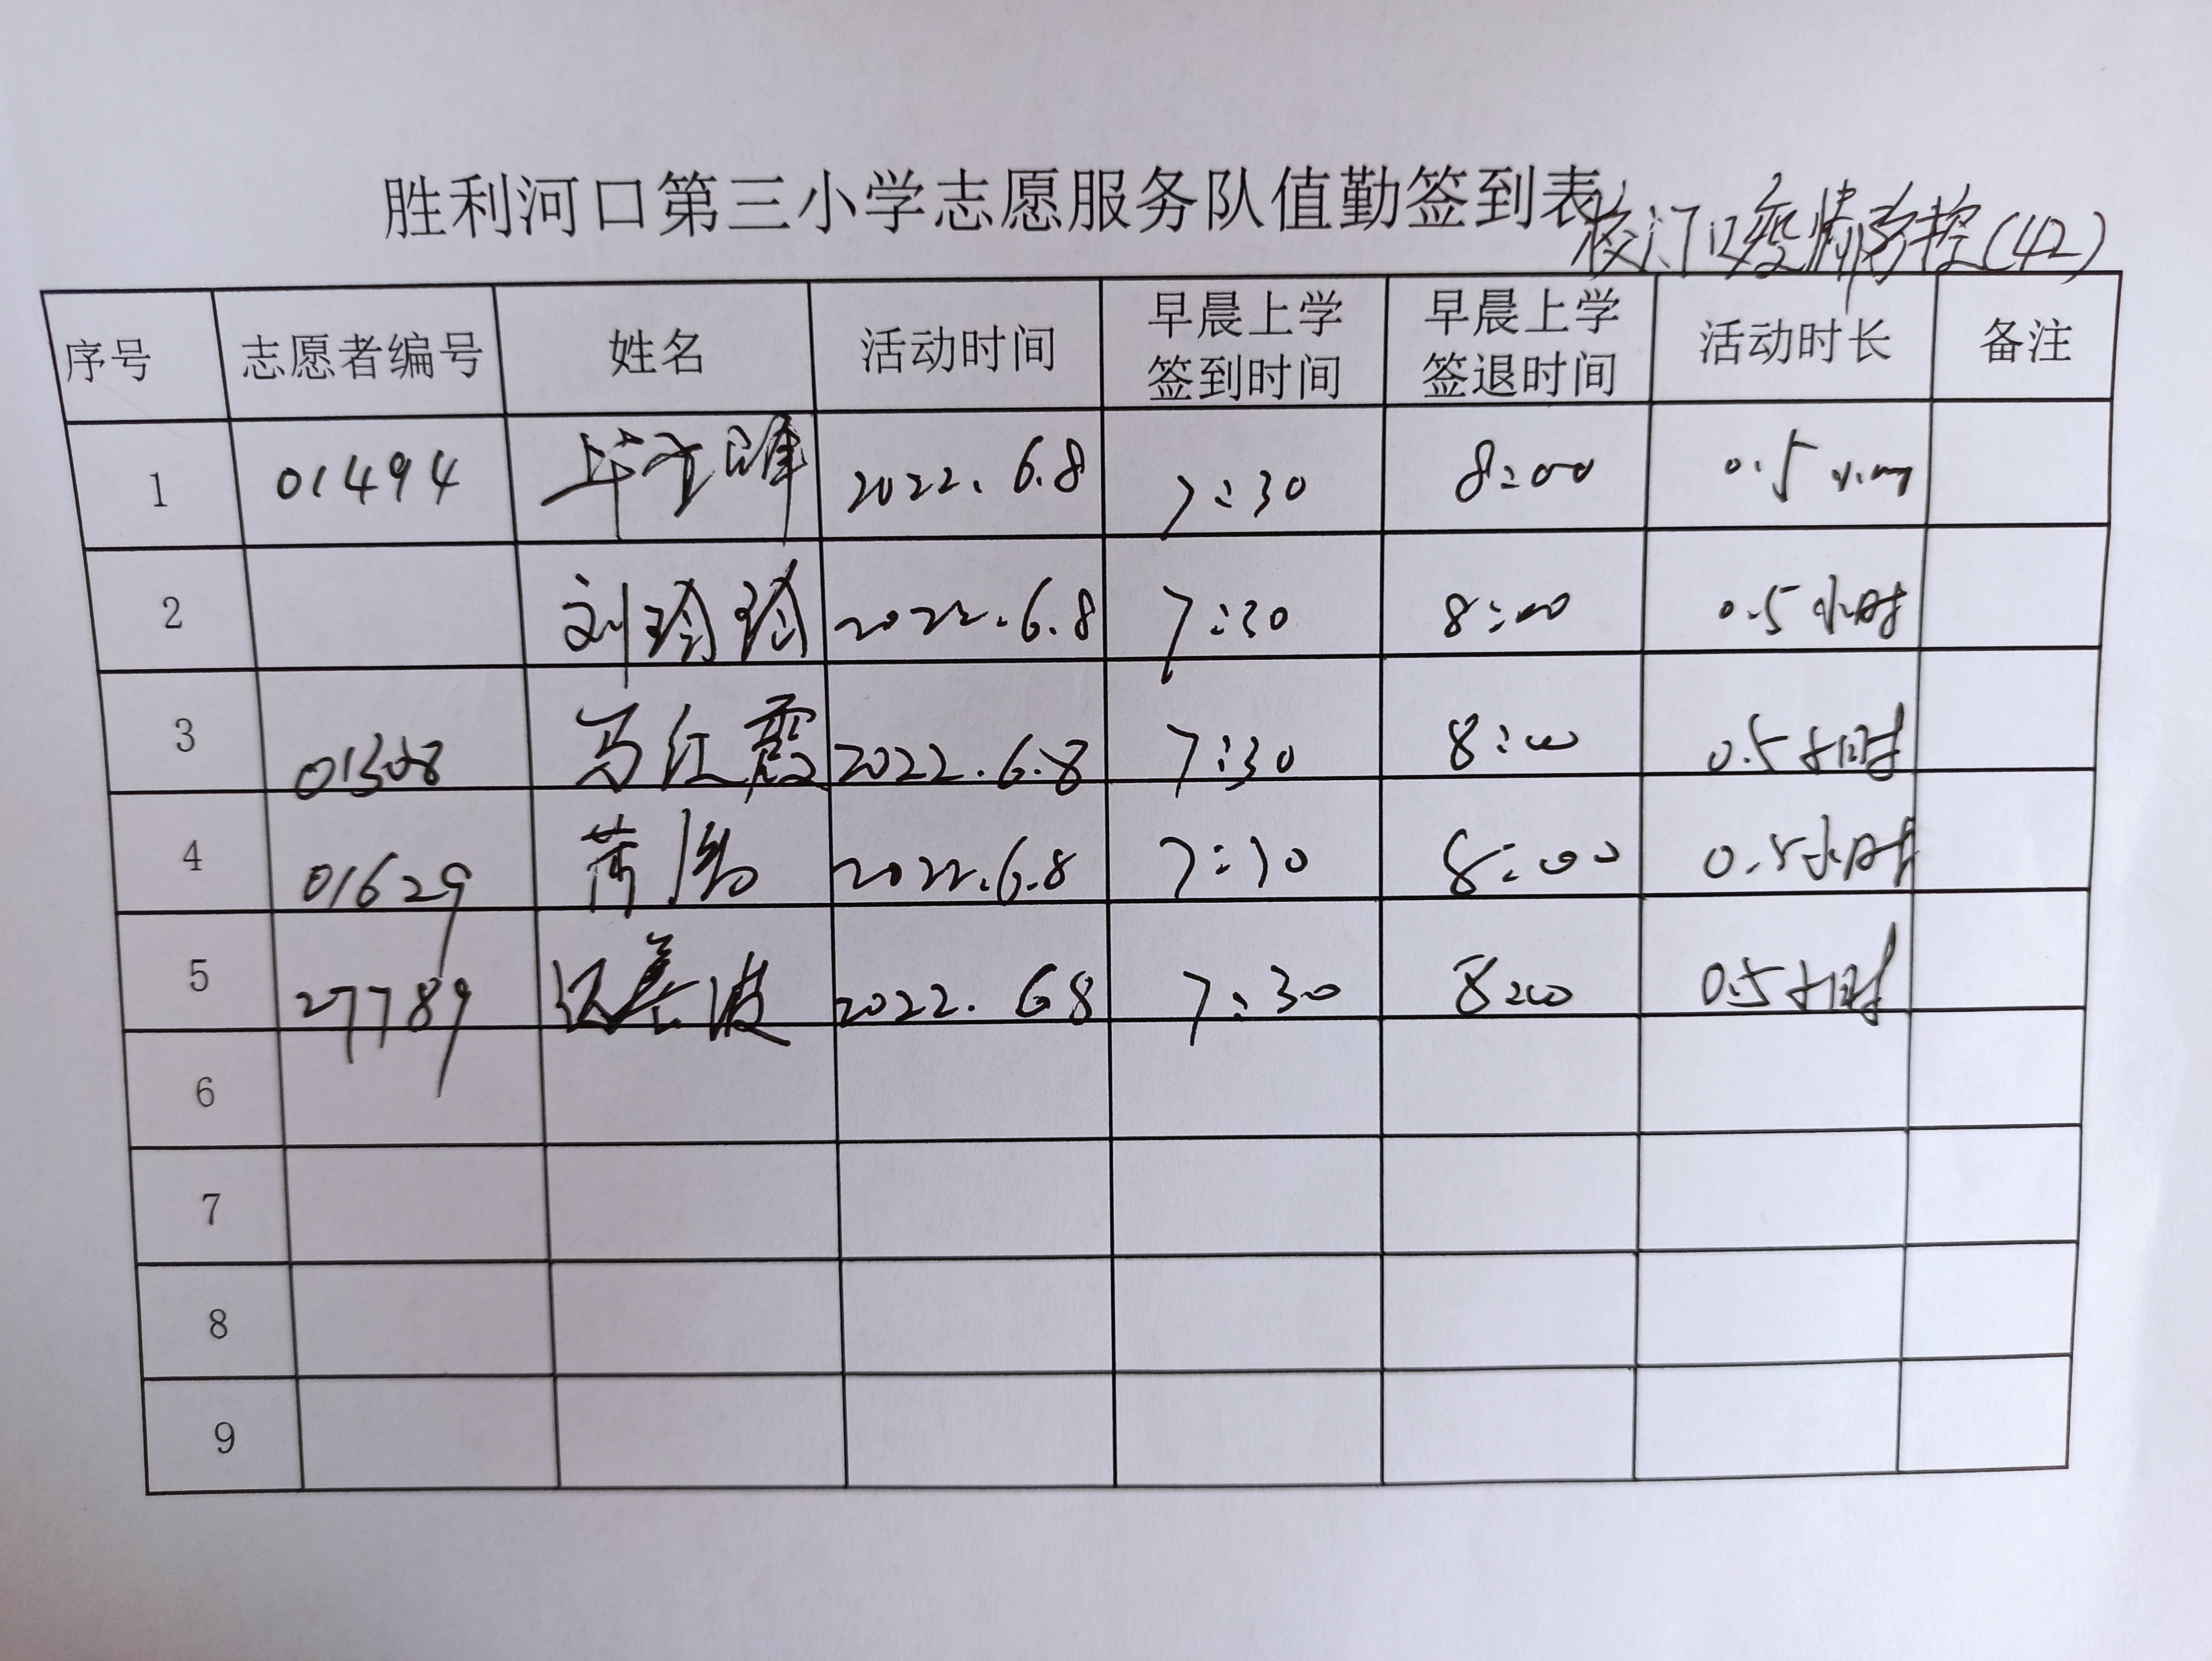 胜利河口第三小学志愿服务队值勤签到表
校门口疫情防控(42)
序号 志愿者编号 姓名 活动时间 早晨上学签到时间 早晨上学签退时间 活动时长 备注
1 01494 2022.6.8 7:30 8:00 0.5小时
2 刘玲玲 2022.6.8 7:30 8:00 0.5小时
3 01308 马红霞 2022.6.8 7:30 8:00 0.5小时
4 01629 2022.6.8 7:30 8:00 0.5小时
5 27789 2022.6.8 7:30 8:00 0.5小时
6
7
8
9